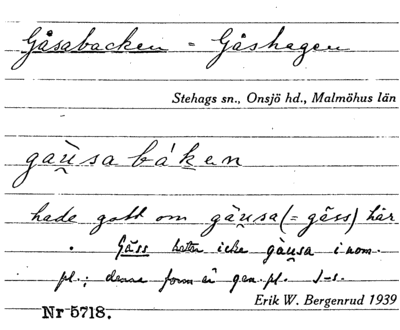 Gåsabacken - Gåshagen
Stehags sn., Onsjö hd., Malmöhus län
gàu̯sabákan
hade gott om gàu̯sa (= gäss) här
. Gäss heter icke gàu̯sa i nom.
pl.; denna form är gen. pl. J-s.
Erik W. Bergenrud 1939
Nr 5718.